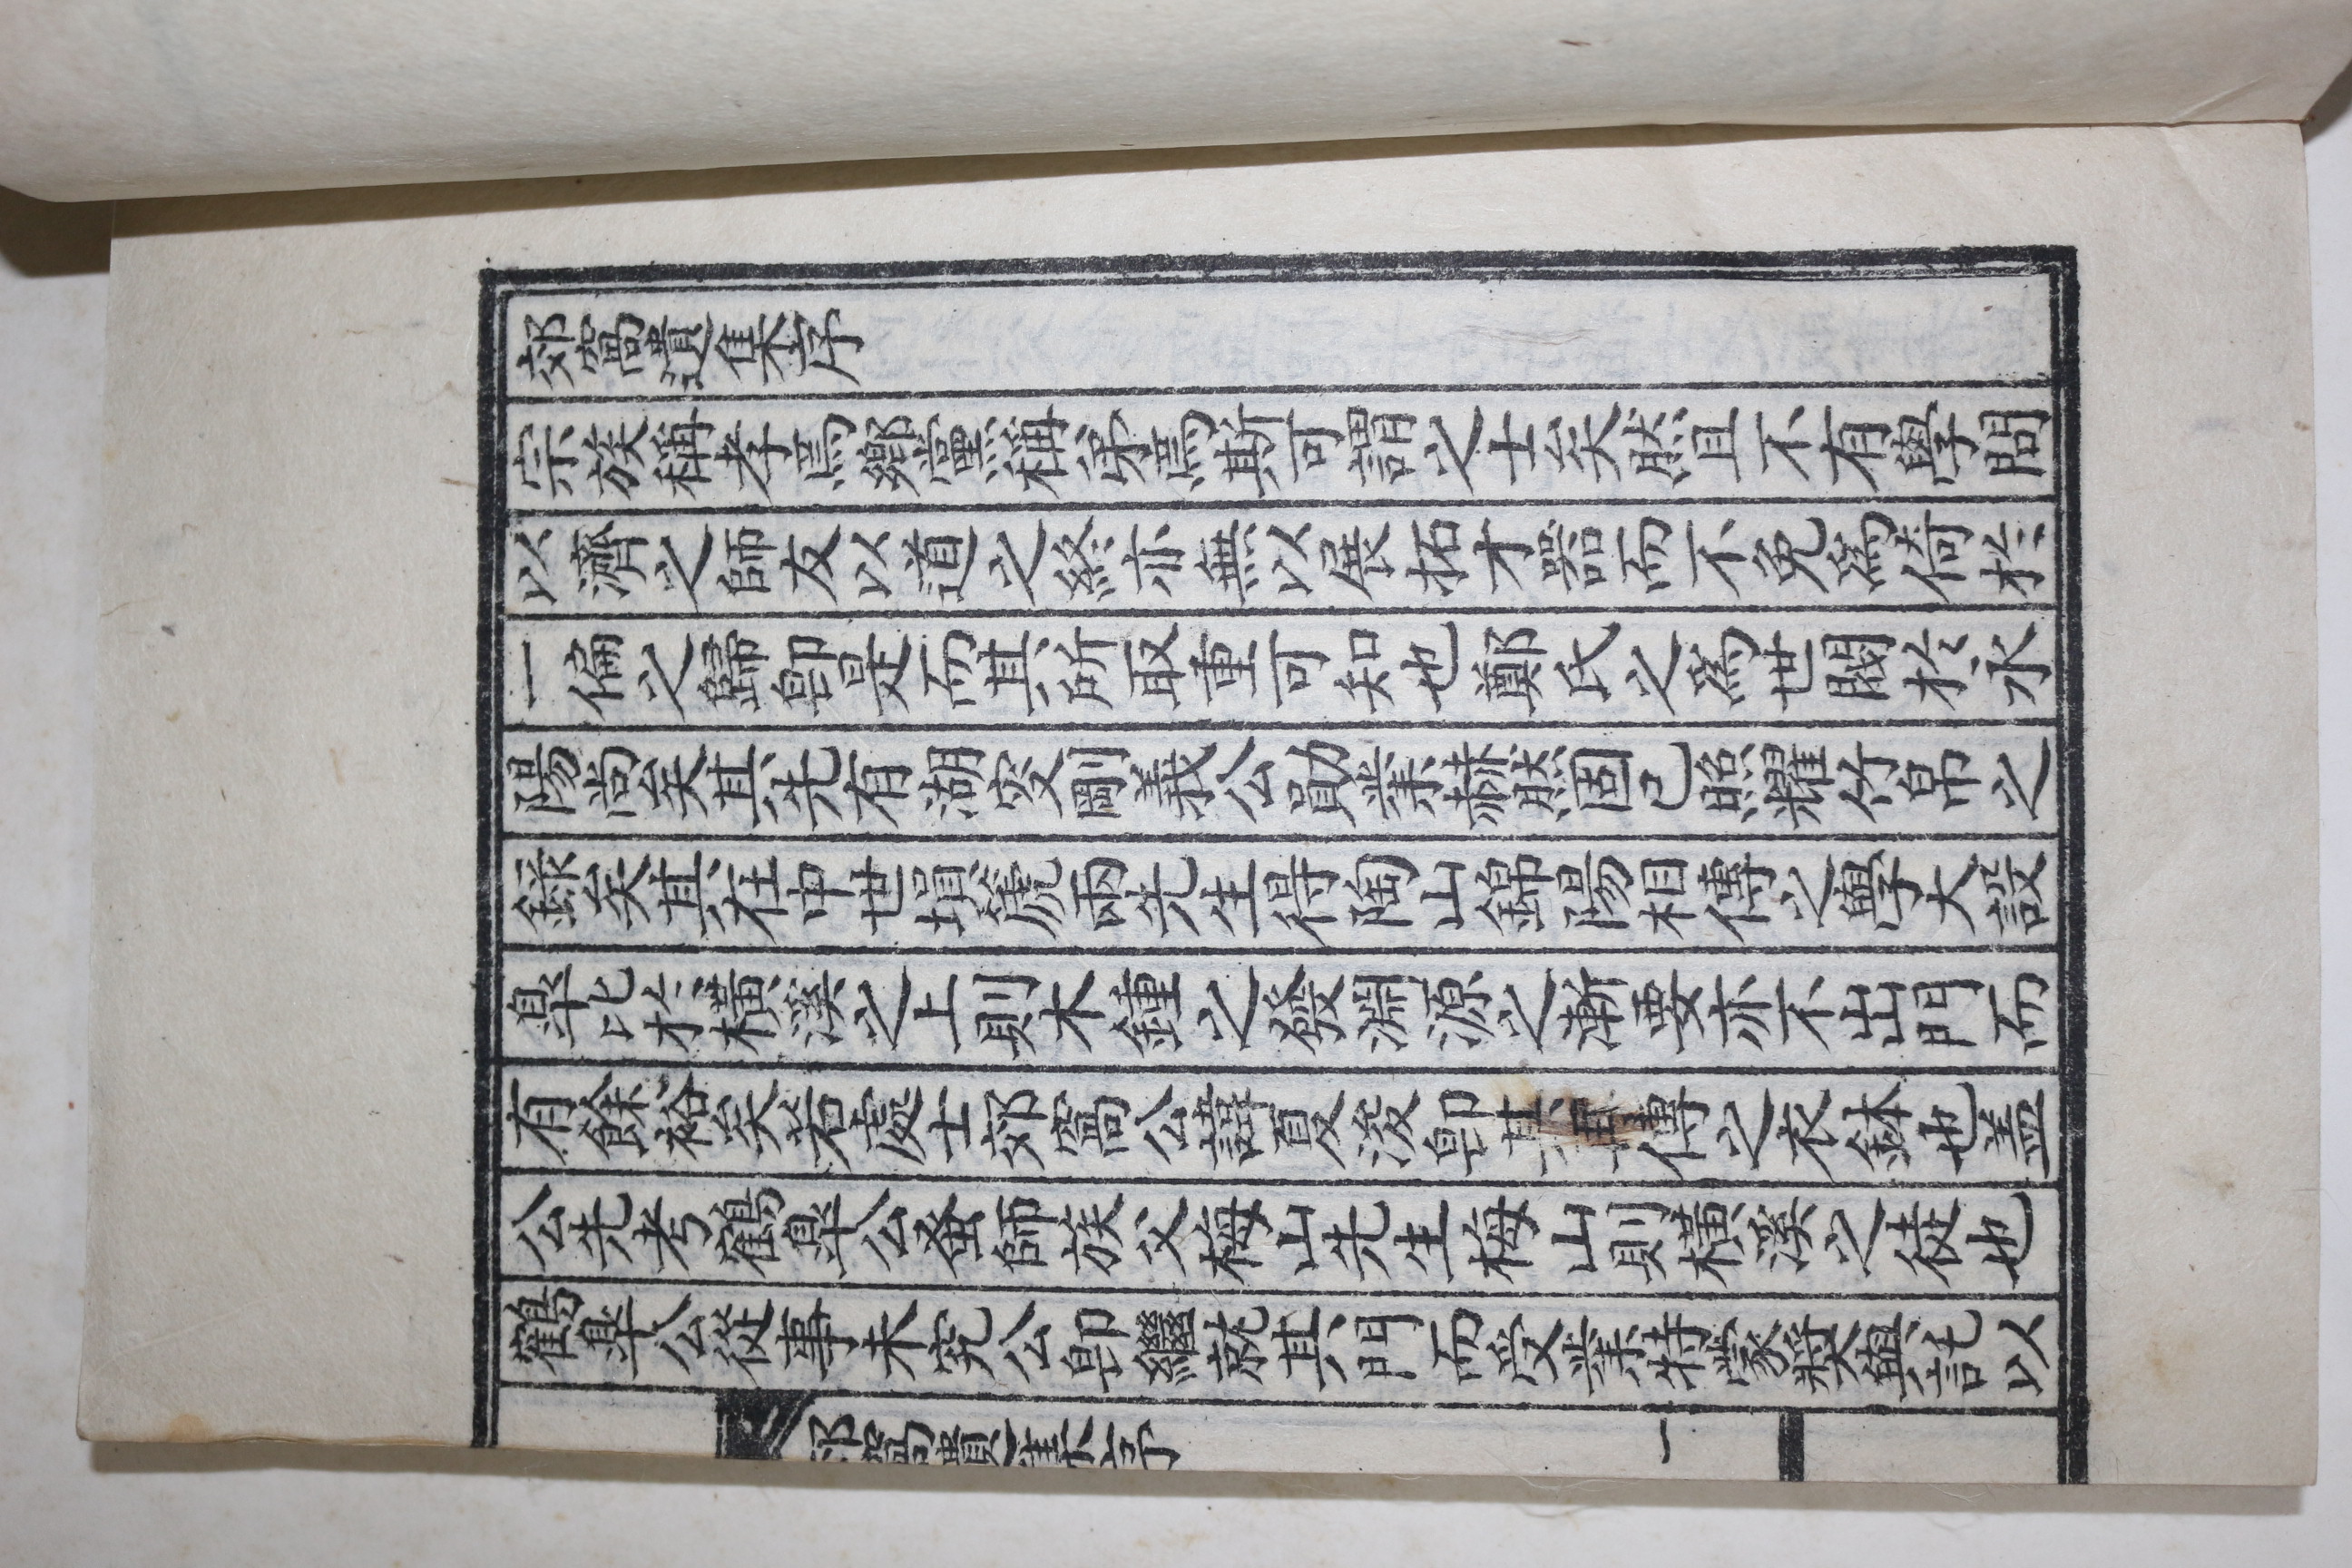 郊窩遺集序
宗族稱孝焉鄉黨稱弟焉斯可謂之士矣然且不有學問
以濟之師友以道之終亦無以展拓才器而不免爲倚於
一偏之歸卽是而其所取重可知也鄭氏之爲世閥於永
陽尚矣其先有湖叟剛義公勛業赫然固已照耀竹帛之
錄矣其在中世塤篪兩先生得陶山錦陽相傳之學大設
臯比於橫溪之上則木鐘之發淵源之漸要亦不出門而
有餘裕矣若處士郊窩公諱夏濬卽其 傳之衣鉢也盖
公先考鶴臯公蚤師族父梅山先生梅山則橫溪之徒也
鶴臯公從事未究公卽繼就其門而受業特蒙奬與託以
郊窩遺集序 一